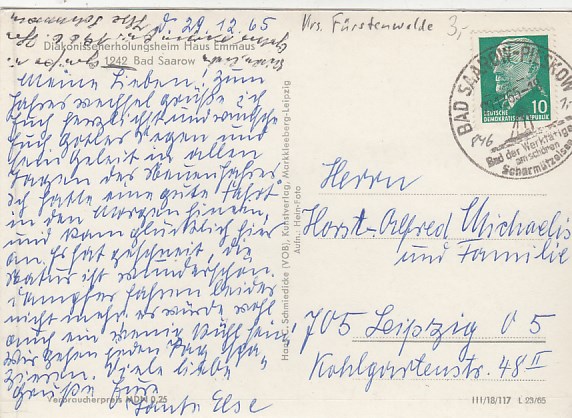 d. 29.12.65
Diakonissenerholungsheim Haus Emmaus
1242 Bad Saarow
Meine Lieben! Zum
Jahreswechsel grüße ich
Euch herzlich und wünsche
Euch Gottes Segen und
sein Geleit in allen
Tagen des neuen Jahres.
Ich hatte eine gute Fahrt
in den Morgen hinein,
und kam glücklich hier
an. Es hat geschneit, die
Natur ist wunderschön.
Dampfer fahren leider
nicht mehr, es würde wohl
auch ein wenig kühl sein.
Wir gehen jeden Tag spa-
zieren. Viele liebe
Grüße Eure
Tante Else
Verbraucherpreis MDN 0,25
Hans C. Schmiedicke (VOB), Kunstverlag, Markkleeberg-Leipzig
Aufn.: Hein-Foto
Vrs. Fürstenwalde
3,-
10
DEUTSCHE
DEMOKRATISCHE REPUBLIK
BAD SAAROW-PIESKOW
846
Bad der Werktätigen
am schönen
Scharmützelsee
Herrn
Horst-Alfred Michaelis
und Familie
705 Leipzig O 5
Kohlgartenstr. 48 II
III/18/117 L 23/65